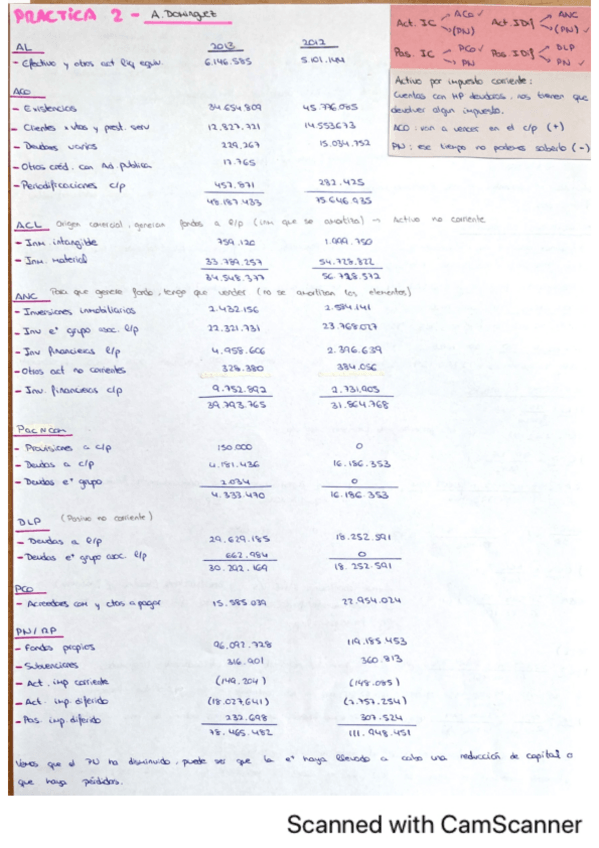 PRACTICA 2 - A. Dominguez
Act. IC ACo ✓ (PN) Act. IDif ANC (PN) ✓
Pas. IC PCo ✓ PN Pas. IDif DLP PN ✓
Activo por impuesto corriente:
Cuentas con HP deudora, nos tienen que
devolver algún impuesto.
ACO: van a vencer en el c/p (+)
PN: ese tiempo no podemos saberlo (-)
AL 2013 2012
- Efectivo y otros act líq equiv. 6.146.585 5.101.144
ACO
- Existencias 34.654.809 45.776.085
- Clientes x vtas y prest. serv 12.827.721 14.553673
- Deudores varios 229.267 15.034.752
- Otros créd. con Ad. publica 17.765
- Periodificaciones c/p 457.871 282.425
48.187.433 75.646.935
ACL Origen comercial, generan fondos a l/p (inm que se amortiza) → Activo no corriente
- Inm intangible 759.120 1.999.750
- Inm. material 33.789.257 54.728.822
34.548.377 56.728.572
ANC Para que genere fondo, tengo que vender (no se amortizan los elementos)
- Inversiones inmobiliarias 2.432.156 2.584.141
- Inv eª grupo asoc. l/p 22.321.731 23.768.027
- Inv financieras l/p 4.958.606 2.396.639
- Otros act no corrientes 328.380 384.056
- Inv. financieras c/p 9.752.892 2.731.905
39.793.765 31.864.768
PacNCom
- Provisiones a c/p 150.000 0
- Deudas a c/p 4.181.436 16.186.353
- Deudas eª grupo 2.034 0
4.333.470 16.186.353
DLP (Pasivo no corriente)
- Deudas a l/p 29.629.185 18.252.591
- Deudas eª grupo asoc. l/p 662.984 0
30.292.169 18.252.591
PCO
- Acreedores com y ctas a pagar 15.585.039 22.954.024
PN/RP
- Fondos propios 96.092.728 119.185.453
- Subvenciones 316.901 360.813
- Act. imp corriente (149.204) (148.085)
- Act. imp diferido (18.027.641) (7.757.254)
- Pas. imp. diferido 232.698 307.524
78.465.482 111.948.451
Vemos que el PN ha disminuido, puede ser que la eª haya llevado a cabo una reducción de capital o
que haya pérdidas.
Scanned with CamScanner